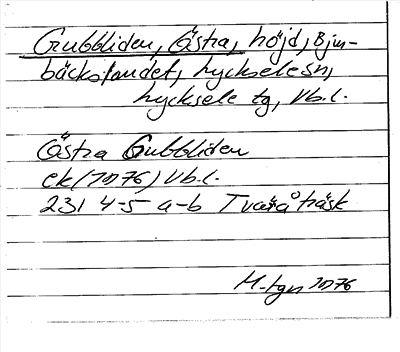 Grubbliden, Östra, höjd, Bjur-
bäckslandet, Lycksele sn,
Lycksele tg, Vb.l.
Östra Grubbliden
ek (1976) Vb.l.
231 4-5 a-b Tväråträsk
M-tgn 1976